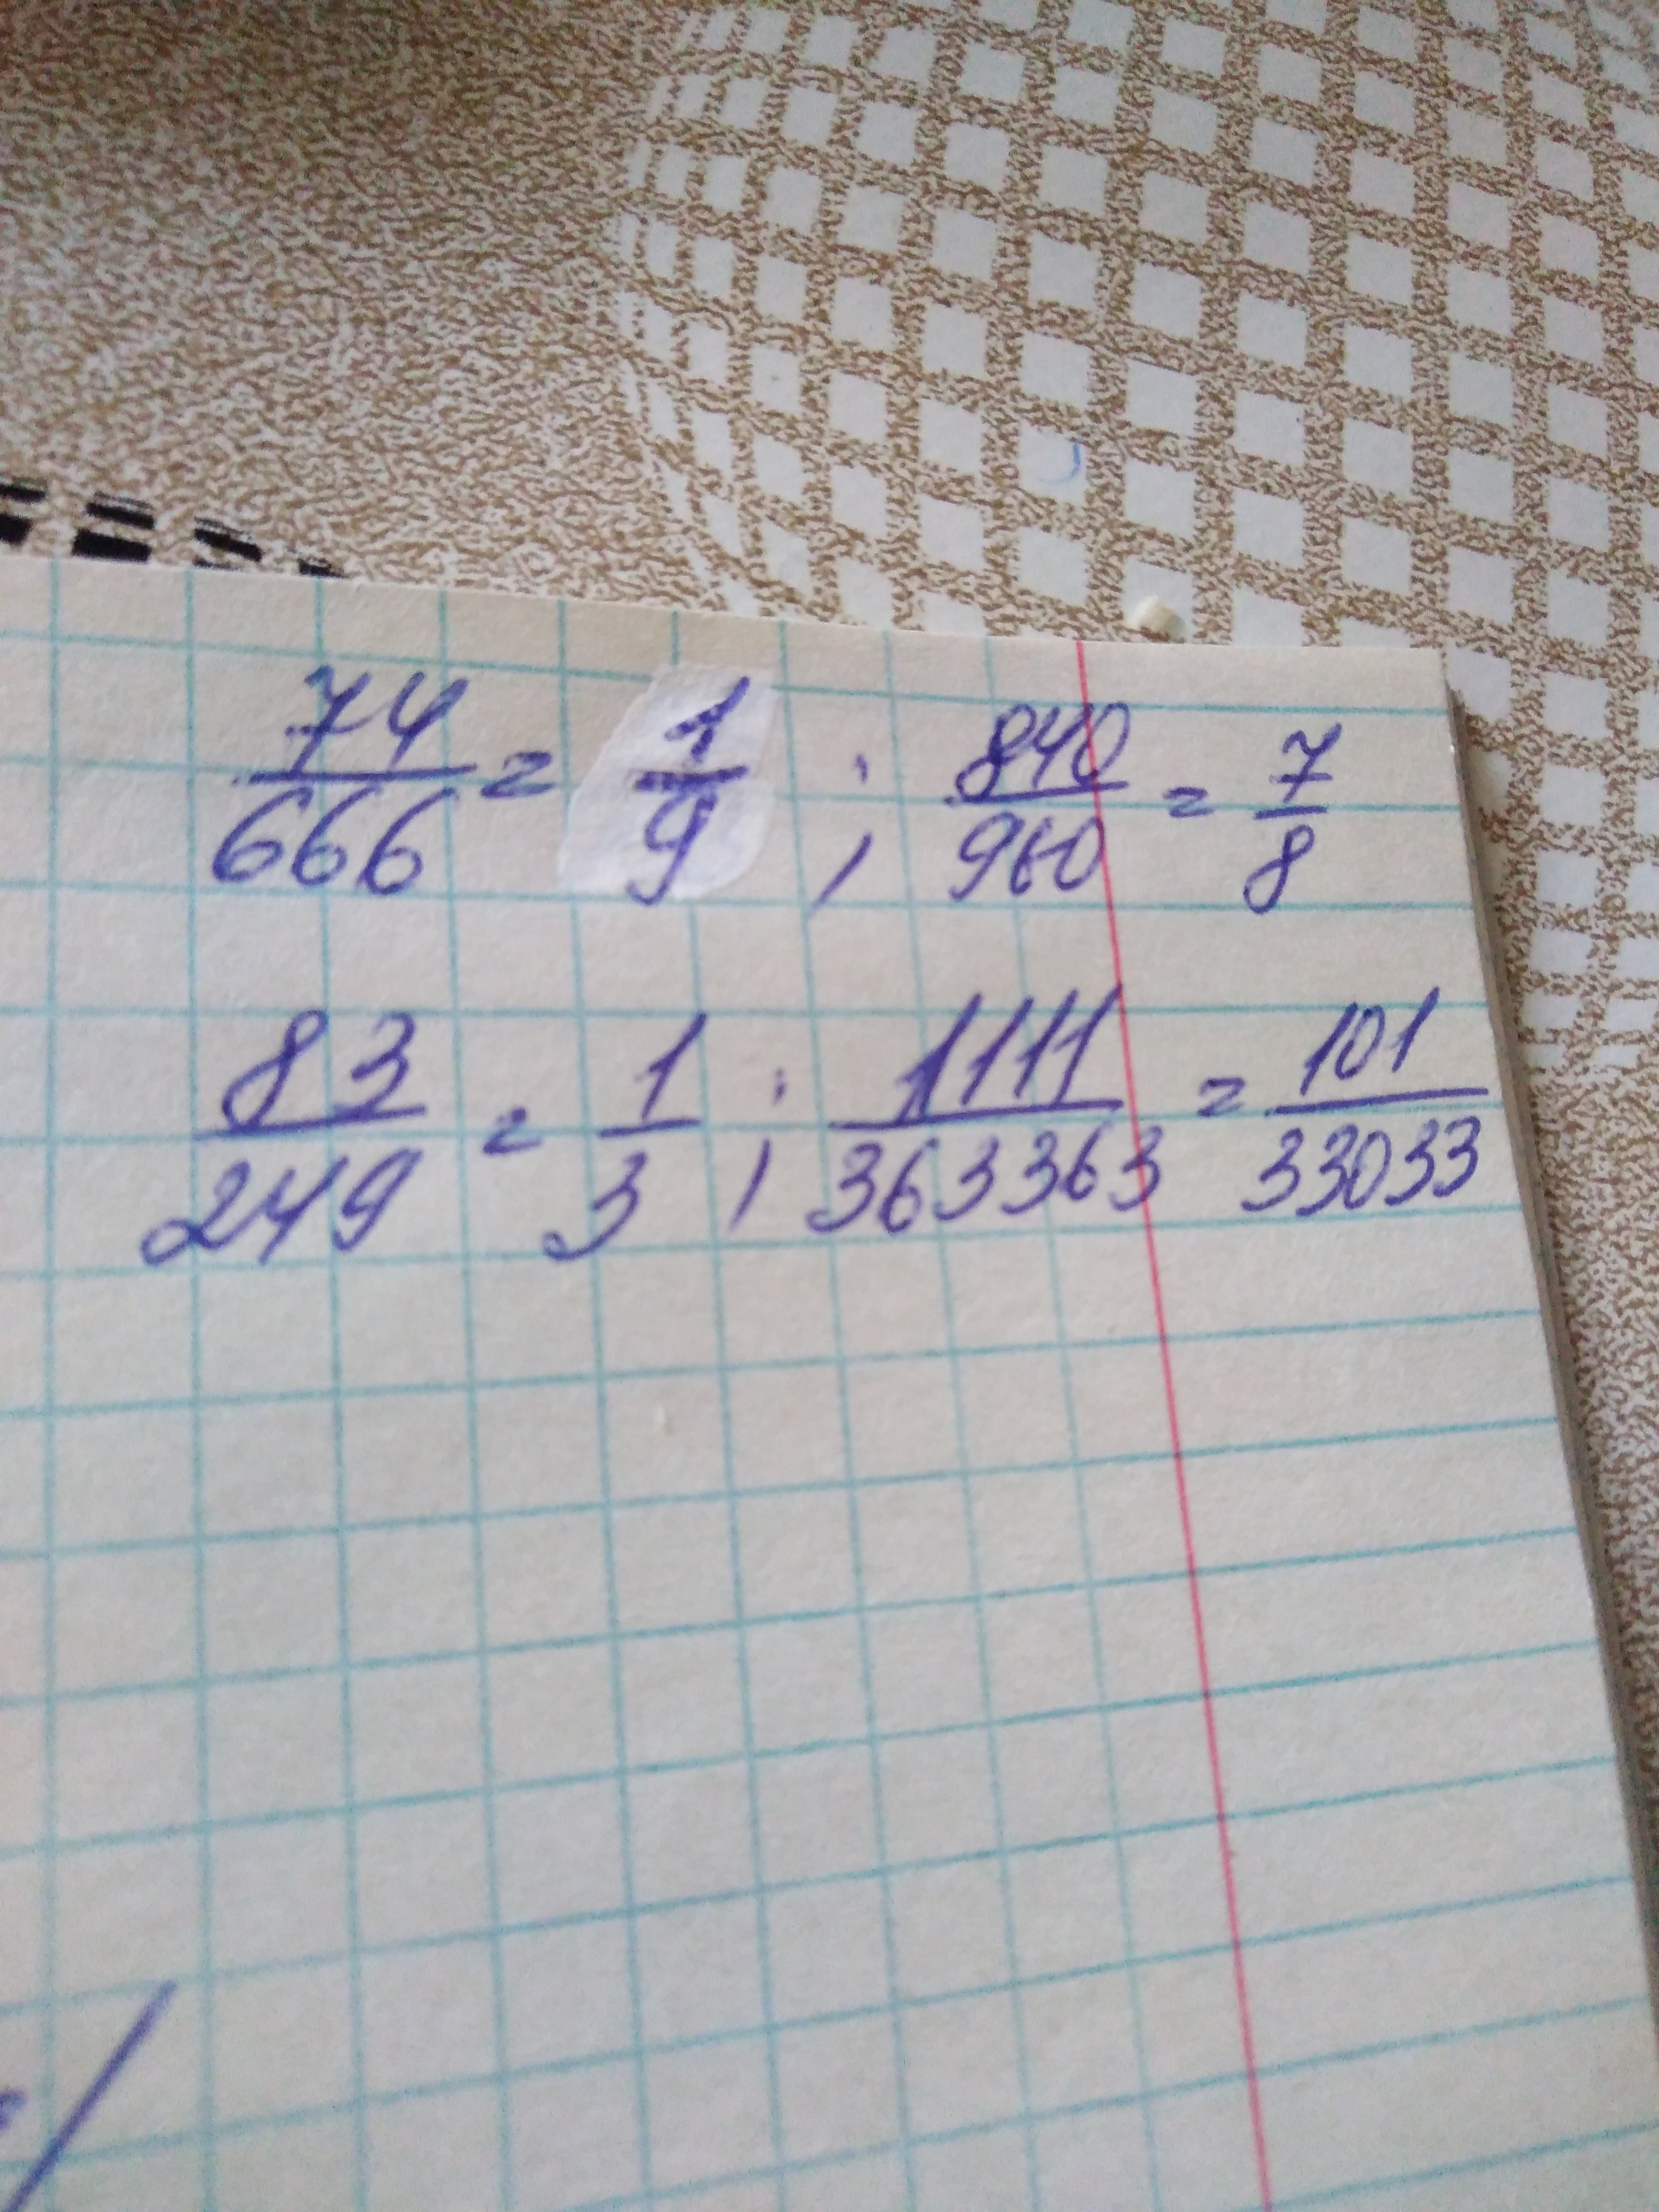 74/666 = 1/9 ; 840/960 = 7/8
83/249 = 1/3 ; 1111/363363 = 101/33033